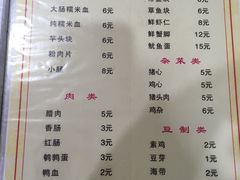 大肠糯米血 6元
纯糯米血 6元
芋头块 6元
粉肉片 6元
小肠 8元
肉类
腊肉 5元
香肠 3元
红肠 3元
鹌鹑蛋 3元
鸭血 2元
草鱼块 6元
鲜虾仁 8元
鲜蟹脚 12元
鱿鱼蛋 15元
杂菜类
猪心 5元
鸡心 5元
猪头肉 5元
鸡杂 6元
豆制类
素鸡 2元
豆芽 1元
海带 2元